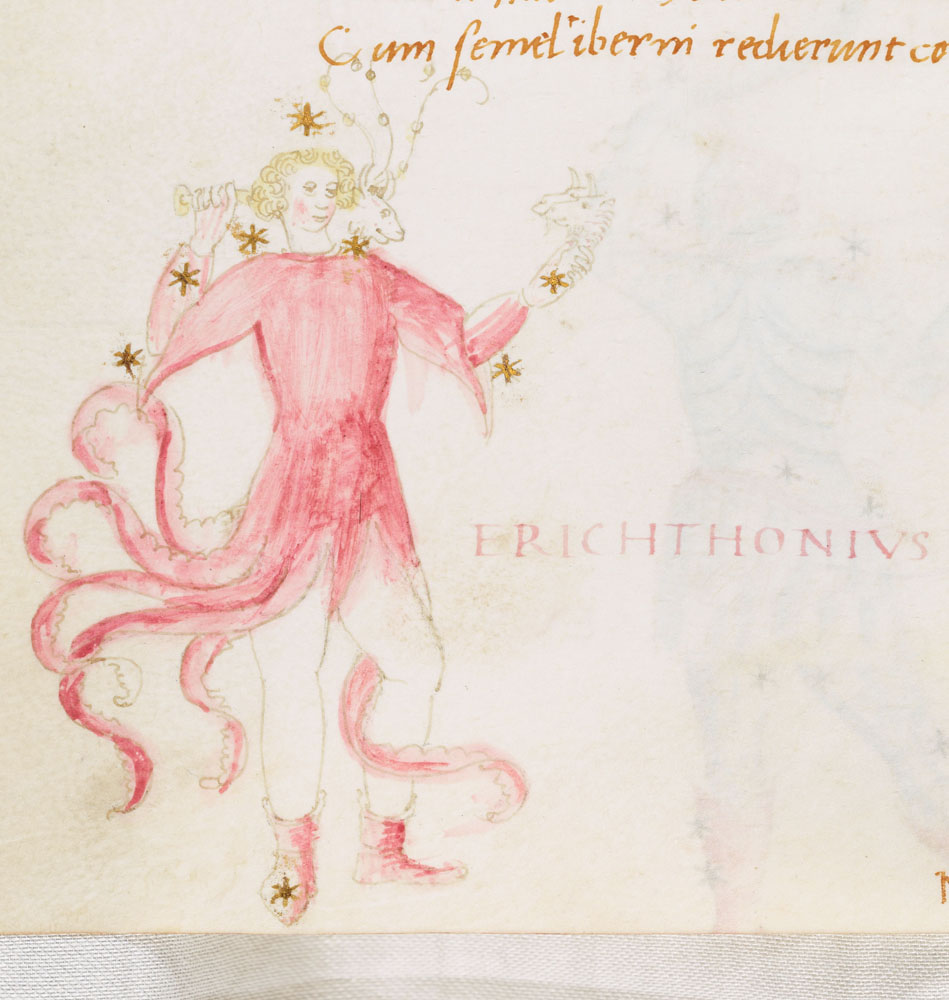 Cum semel iberni redierunt co
ERICHTHONIVS